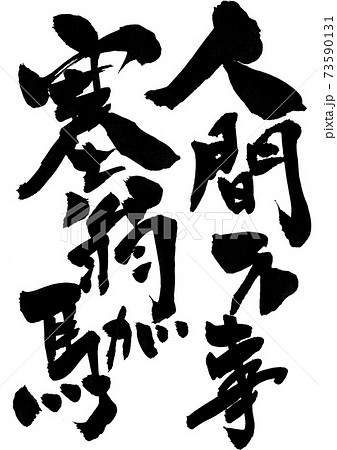 人間万事
塞翁が馬
PIXTA
pixta.jp - 73590131